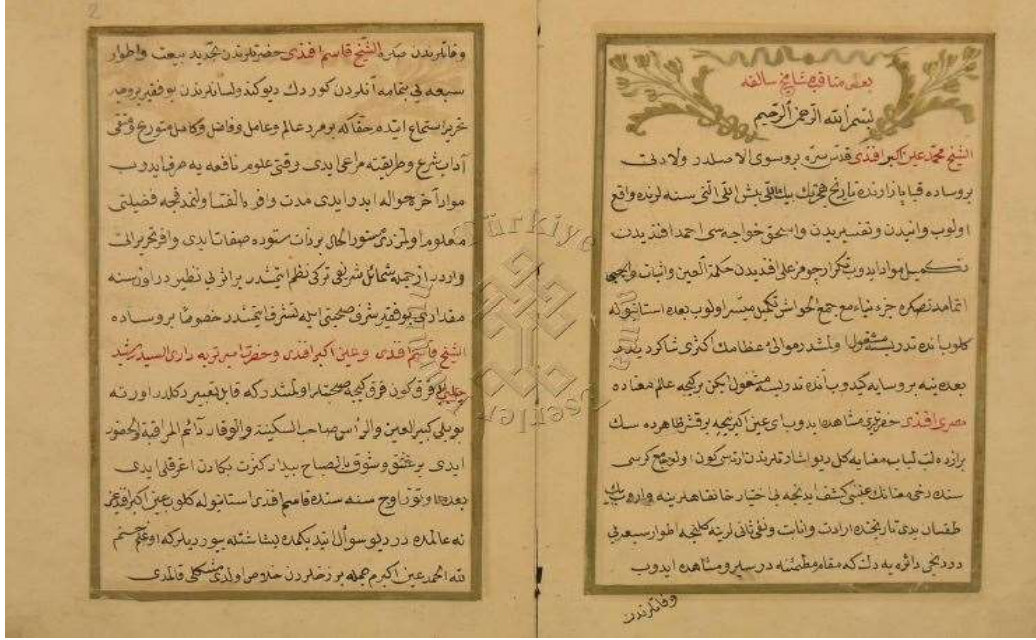 بعض مناقب مشايخ سالفه
بسم الله الرحمن الرحيم
الشيخ محمد عين اكبر افندى قدس سره بروسوى الاصلدر ولادتى
بروساده قيا بازارنده تاريخ هجرتك بيك اللى بش اللى التى سنه لرنده واقع
اولوب وانيدن وتفسيريدن واسحق خواجه سى احمد افنديدن
تكميل مواد ايدوب تكرار جومر على افنديدن حكمة العين واثبات واجبى
اتمامدنصكره جزء نباء مع جمع الحواشى تكميل ميسر اولوب بعده استانبوله
كلوب انده تدريسه مشغول اولمشدر موالى عظامك اكثرى شاكرديدر
بعده ينه بروسايه كيدوب انده تدريسه مشغول ايكن بر كيجه عالم معناده
مصرى افندى حضرتلرى مشاهده ايدوب اى عين اكبر نيجه بر قشر ظاهرده سك
براز ده لب لباب معنايه كل ديو اشارتلرندن ارتسى كون اولو جامع كرسى
سنده دخى معناتك عيننى كشف ايدنجه بى اختيار خانقاهلرينه واروب بيك
طقسان يدى تاريخنده ارادت وانابت ونفى ثانى لرينه كلنجه اطوار سبعه يى
دودنجى دائره يه دك كه مقام مطمئنه در سير ومشاهده ايدوب
وفاتلرندن
2
وفاتلرندن صكره الشيخ قاسم افندى حضرتلرندن تجديد بيعت واطوار
سبعه يى بتمامه آنلردن كوردك ديو كندو لسانلرندن بو فقير بروجه
تحرير استماع ايتدم حقا كه بر مرد عالم وعامل وفاضل وكامل متورع ومتقى
آداب شرع وطريقته مراعى ايدى وقتى علوم نافعه يه صرف ايدوب
موارا آخره حواله ايدر ايدى مدت وافر بالفتا اولنمدقجه فضيلتى
معلوم اولمزدى مستور الحال بر ذات ستوده صفات ايدى وافر تحريراتى
واردر از جمله شمائل شريفى تركى نظم ايتمشدر بر اثر بى نظيردر اوتوز سنه
مقدارى بو فقير شرف صحبتى ايله تشرف ايتمشدر خصوصا بروساده
الشيخ قاسم افندى وعين اكبر افندى وحضرت امير تربه دارى السيد رشيد
چلبى قرق كون قرق كيجه صحبتلر اولمشدر كه قابل تعبير دكلدر اورته
بويلى كبير العين والرأس صاحب السكينة والوقار دائم المراقبة والحضور
ايدى بر عشق وشوق بالصباح بيدار كثرت بكادن اعرقلى ايدى
بعده اوتوز اوچ سنه سنده قاسم افندى استانبوله كلور عين اكبر افندمز
نه عالمده در ديو سوأل ايتديكمده بشاشتله بيورديلر كه اوغلم حسنم
لله الحمد عين اكبرم جمله برزخلردن خلاص اولدى مشكلى قالمدى